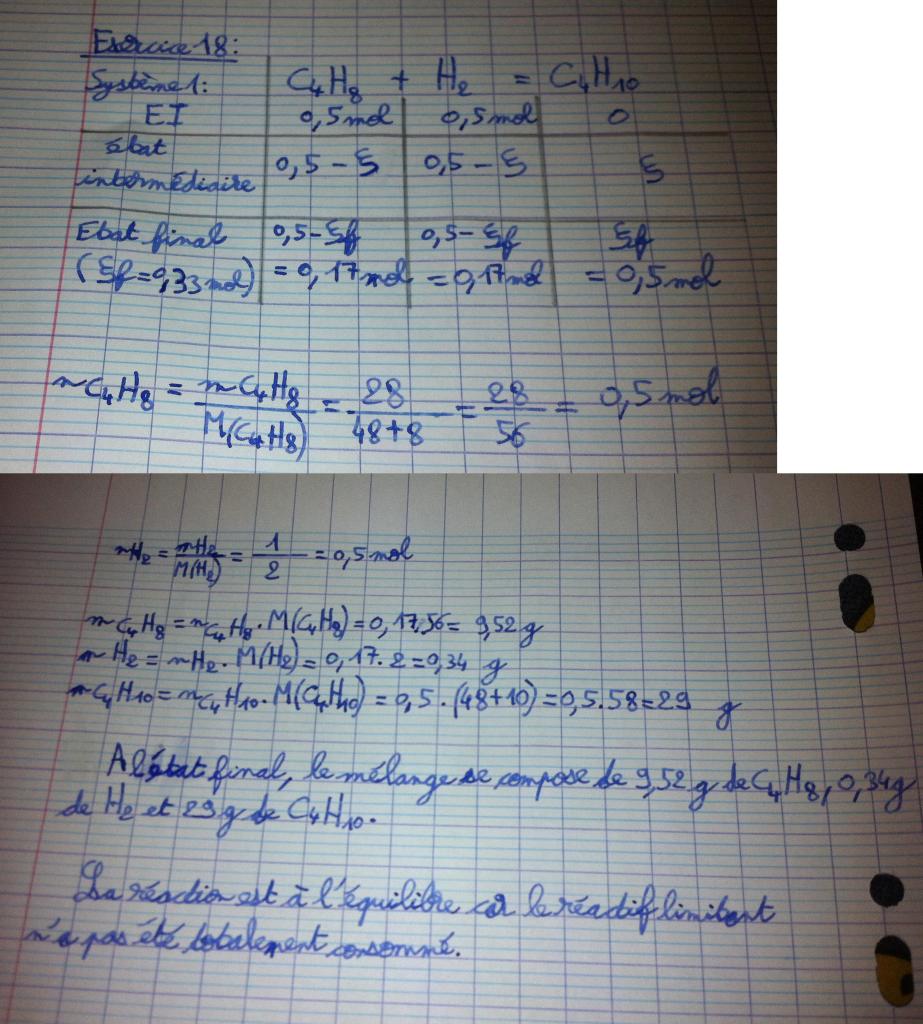 Exercice 18:
Système 1: C4H8 + H2 = C4H10
EI 0,5 mol 0,5 mol 0
état intermédiaire 0,5 - ξ 0,5 - ξ ξ
Etat final 0,5 - ξf 0,5 - ξf ξf
(ξf = 0,33 mol) = 0,17 mol = 0,17 mol = 0,5 mol
nC4H8 = mC4H8 / M(C4H8) = 28 / 48+8 = 28 / 56 = 0,5 mol
nH2 = mH2 / M(H2) = 1 / 2 = 0,5 mol
mC4H8 = nC4H8 . M(C4H8) = 0,17.56 = 9,52 g
mH2 = nH2 . M(H2) = 0,17 . 2 = 0,34 g
mC4H10 = nC4H10 . M(C4H10) = 0,5 . (48+10) = 0,5.58 = 29 g
A l'état final, le mélange se compose de 9,52 g de C4H8, 0,34g
de H2 et 29 g de C4H10.
La réaction est à l'équilibre car le réactif limitant
n'a pas été totalement consommé.